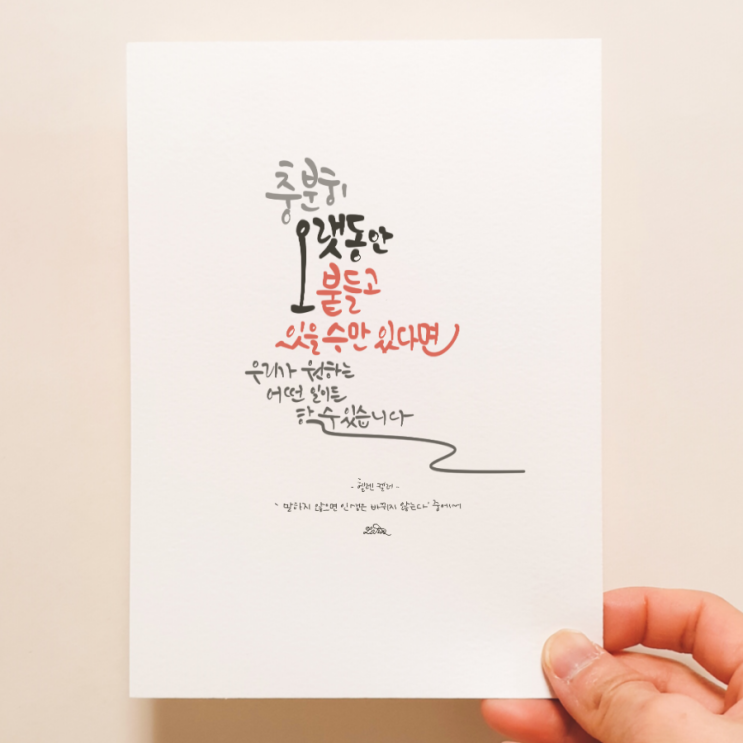 충분히
오랫동안
붙들고
있을 수만 있다면
우리가 원하는
어떤 일이든
할 수 있습니다
- 헬렌 켈러 -
' 말하지 않으면 인생은 바뀌지 않는다' 중에서